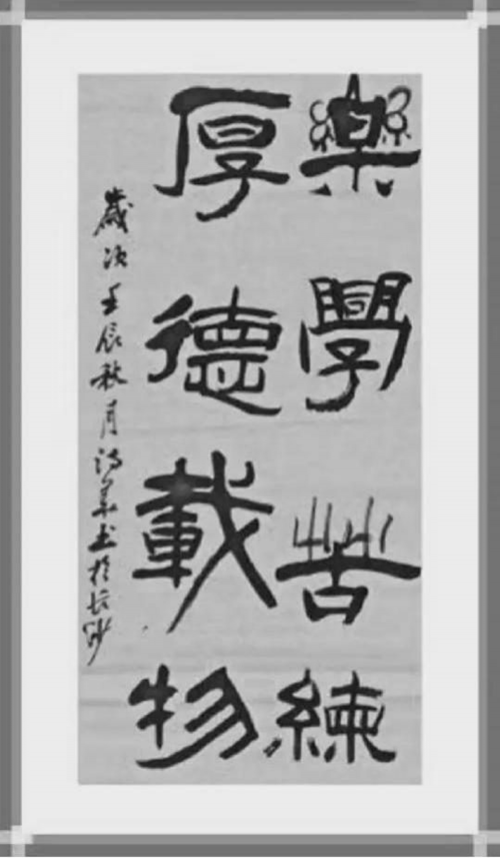 樂學苦練
厚德載物
歲次壬辰秋月詩美书於长沙